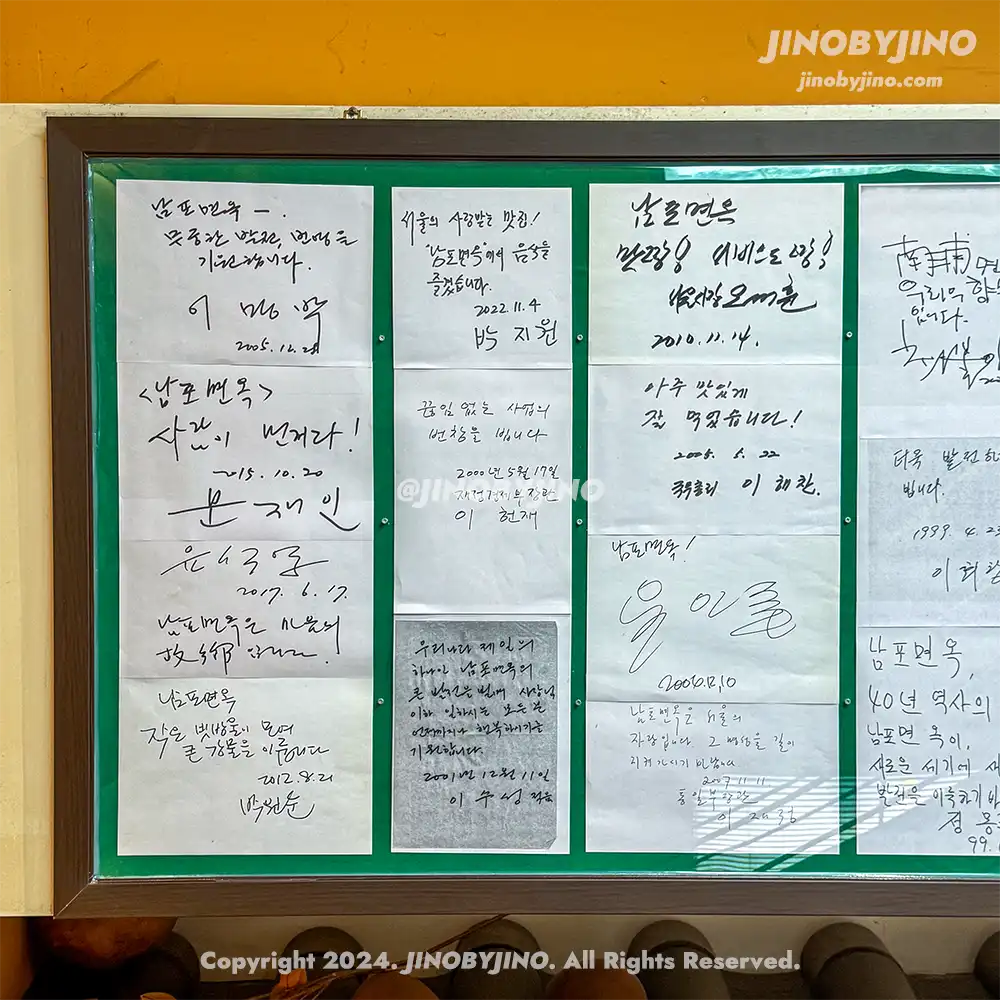 JINOBYJINO
jinobyjino.com
남포면옥 一.
무궁한 발전, 번영을
기원합니다.
이 명 박
2005.12.28
<남포면옥>
사람이 먼저다!
2015.10.20
문재인
윤석열
2017. 6. 17.
남포면옥은 마음의
故鄕입니다.
남포면옥
작은 빗방울이 모여
큰 강물을 이룹니다
2012.8.21
박원순
서울의 사랑받는 맛집!
"남포면옥"에서 음식을
즐겼습니다.
2022.11.4
박지원
끊임 없는 사업의
번창을 빕니다
2000년 5월 17일
재정경제부장관
이 헌재
우리나라 제일의
하나인 남포면옥의
큰 발전은 번에 사장님
이하 일하시는 모든 분
언제까지나 행복하시기를
기원합니다.
2001년 12월 11일
이 수성
남포면옥
맛짱! 서비스도 짱!
서울시장 오세훈
2010.11.14.
아주 맛있게
잘 먹었습니다!
2005. 5. 22
국무총리 이 해찬.
남포면옥!
2006.12.10
남포면옥은 서울의
자랑입니다. 그 명성을 길이
지켜가시기 바랍니다
11.11
통일부장관
이 재정
南浦면
우리의 향
입니다.
더욱 발전하
빕니다.
1999. 4. 23
이회창
남포면옥,
40년 역사의
남포면옥이,
새로운 세기에 새
발전을 이룩하기 바
정 몽
99.
@JINOBYJINO
Copyright 2024. JINOBYJINO. All Rights Reserved.